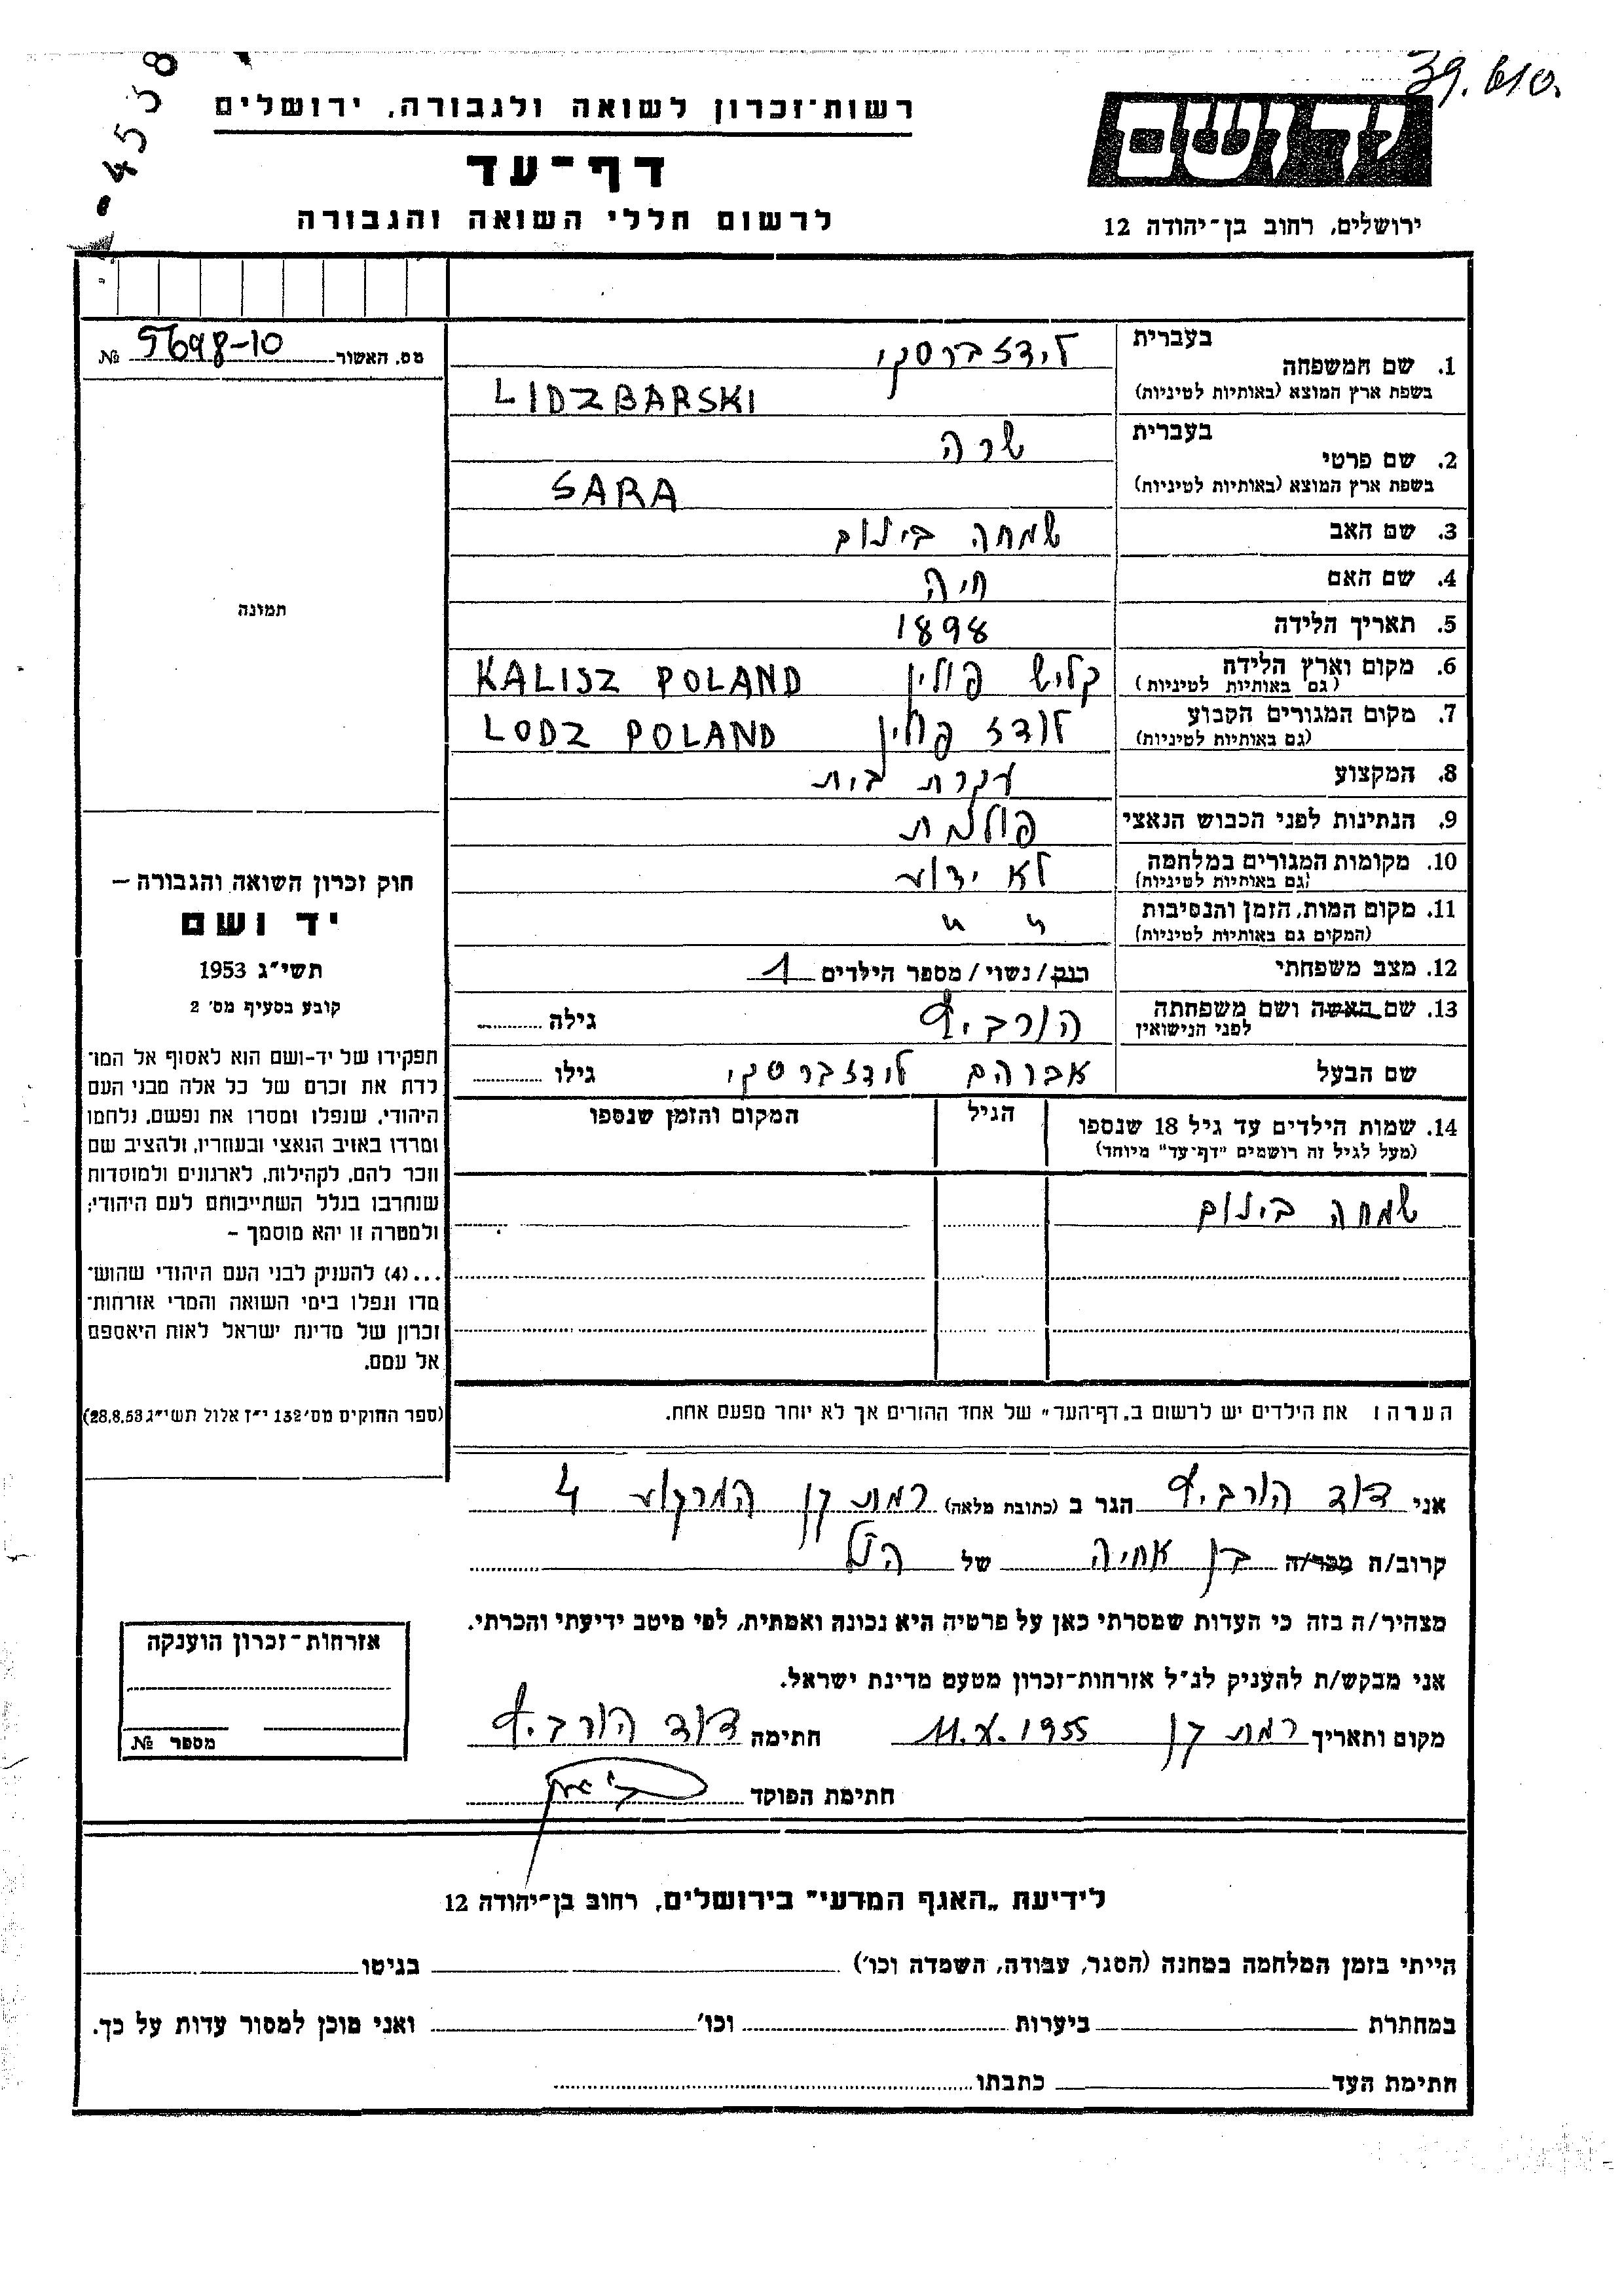 39.610.
4558
רשות־זכרון לשואה ולגבורה, ירושלים
דף־עד
לרשום חללי השואה והגבורה
יד ושם
ירושלים, רחוב בן־יהודה 12
מס. האשור 5698-10 №
תמונה
חוק זכרון השואה והגבורה –
יד ושם
תשי״ג 1953
קובע בסעיף מס׳ 2
תפקידו של יד-ושם הוא לאסוף אל המו־
לדת את זכרם של כל אלה מבני העם
היהודי, שנפלו ומסרו את נפשם, נלחמו
ומרדו באויב הנאצי ובעוזריו, ולהציב שם
וזכר להם, לקהילות, לארגונים ולמוסדות
שנחרבו בגלל השתייכותם לעם היהודי;
ולמטרה זו יהא מוסמך –
...(4) להעניק לבני העם היהודי שהוש־
מדו ונפלו בימי השואה והמרי אזרחות־
זכרון של מדינת ישראל לאות היאספם
אל עמם.
(ספר החוקים מס׳ 132 י״ז אלול תשי״ג 28.8.53)
1. שם המשפחה בעברית לידזברסקי
בשפת ארץ המוצא (באותיות לטיניות) LIDZBARSKI
2. שם פרטי בעברית שרה
בשפת ארץ המוצא (באותיות לטיניות) SARA
3. שם האב שמחה בינום
4. שם האם חיה
5. תאריך הלידה 1898
6. מקום וארץ הלידה (גם באותיות לטיניות) קליש פולין KALISZ POLAND
7. מקום המגורים הקבוע (גם באותיות לטיניות) לודז פולין LODZ POLAND
8. המקצוע עקרת בית
9. הנתינות לפני הכבוש הנאצי פולנית
10. מקומות המגורים במלחמה (גם באותיות לטיניות) לא ידוע
11. מקום המות, הזמן והנסיבות (המקום גם באותיות לטיניות) " "
12. מצב משפחתי רוק/נשוי/מספר הילדים 1
13. שם האשה ושם משפחתה לפני הנישואין הורביץ גילה
שם הבעל אברהם לידזברסקי גילו
14. שמות הילדים עד גיל 18 שנספו הגיל המקום והזמן שנספו
(מעל לגיל זה רושמים "דף־עד" מיוחד)
שמחה בינום
הערה: את הילדים יש לרשום ב„דף־העד״ של אחד ההורים אך לא יותר מפעם אחת.
אני דוד הורביץ הגר ב (כתובת מלאה) רמת גן המרקוע 4
קרוב/ה מכר/ה בן אחיה של הנ"ל
מצהיר/ה בזה כי העדות שמסרתי כאן על פרטיה היא נכונה ואמתית, לפי מיטב ידיעתי והכרתי.
אני מבקש/ת להעניק לנ״ל אזרחות־זכרון מטעם מדינת ישראל.
מקום ותאריך רמת גן 11.X.1955 חתימה דוד הורביץ
חתימת הפוקד
אזרחות־זכרון הוענקה
מספר №
לידיעת „האגף המדעי״ בירושלים, רחוב בן־יהודה 12
הייתי בזמן המלחמה במחנה (הסגר, עבודה, השמדה וכו׳) בגיטו
במחתרת ביערות וכו׳ ואני מוכן למסור עדות על כך.
חתימת העד כתבתו